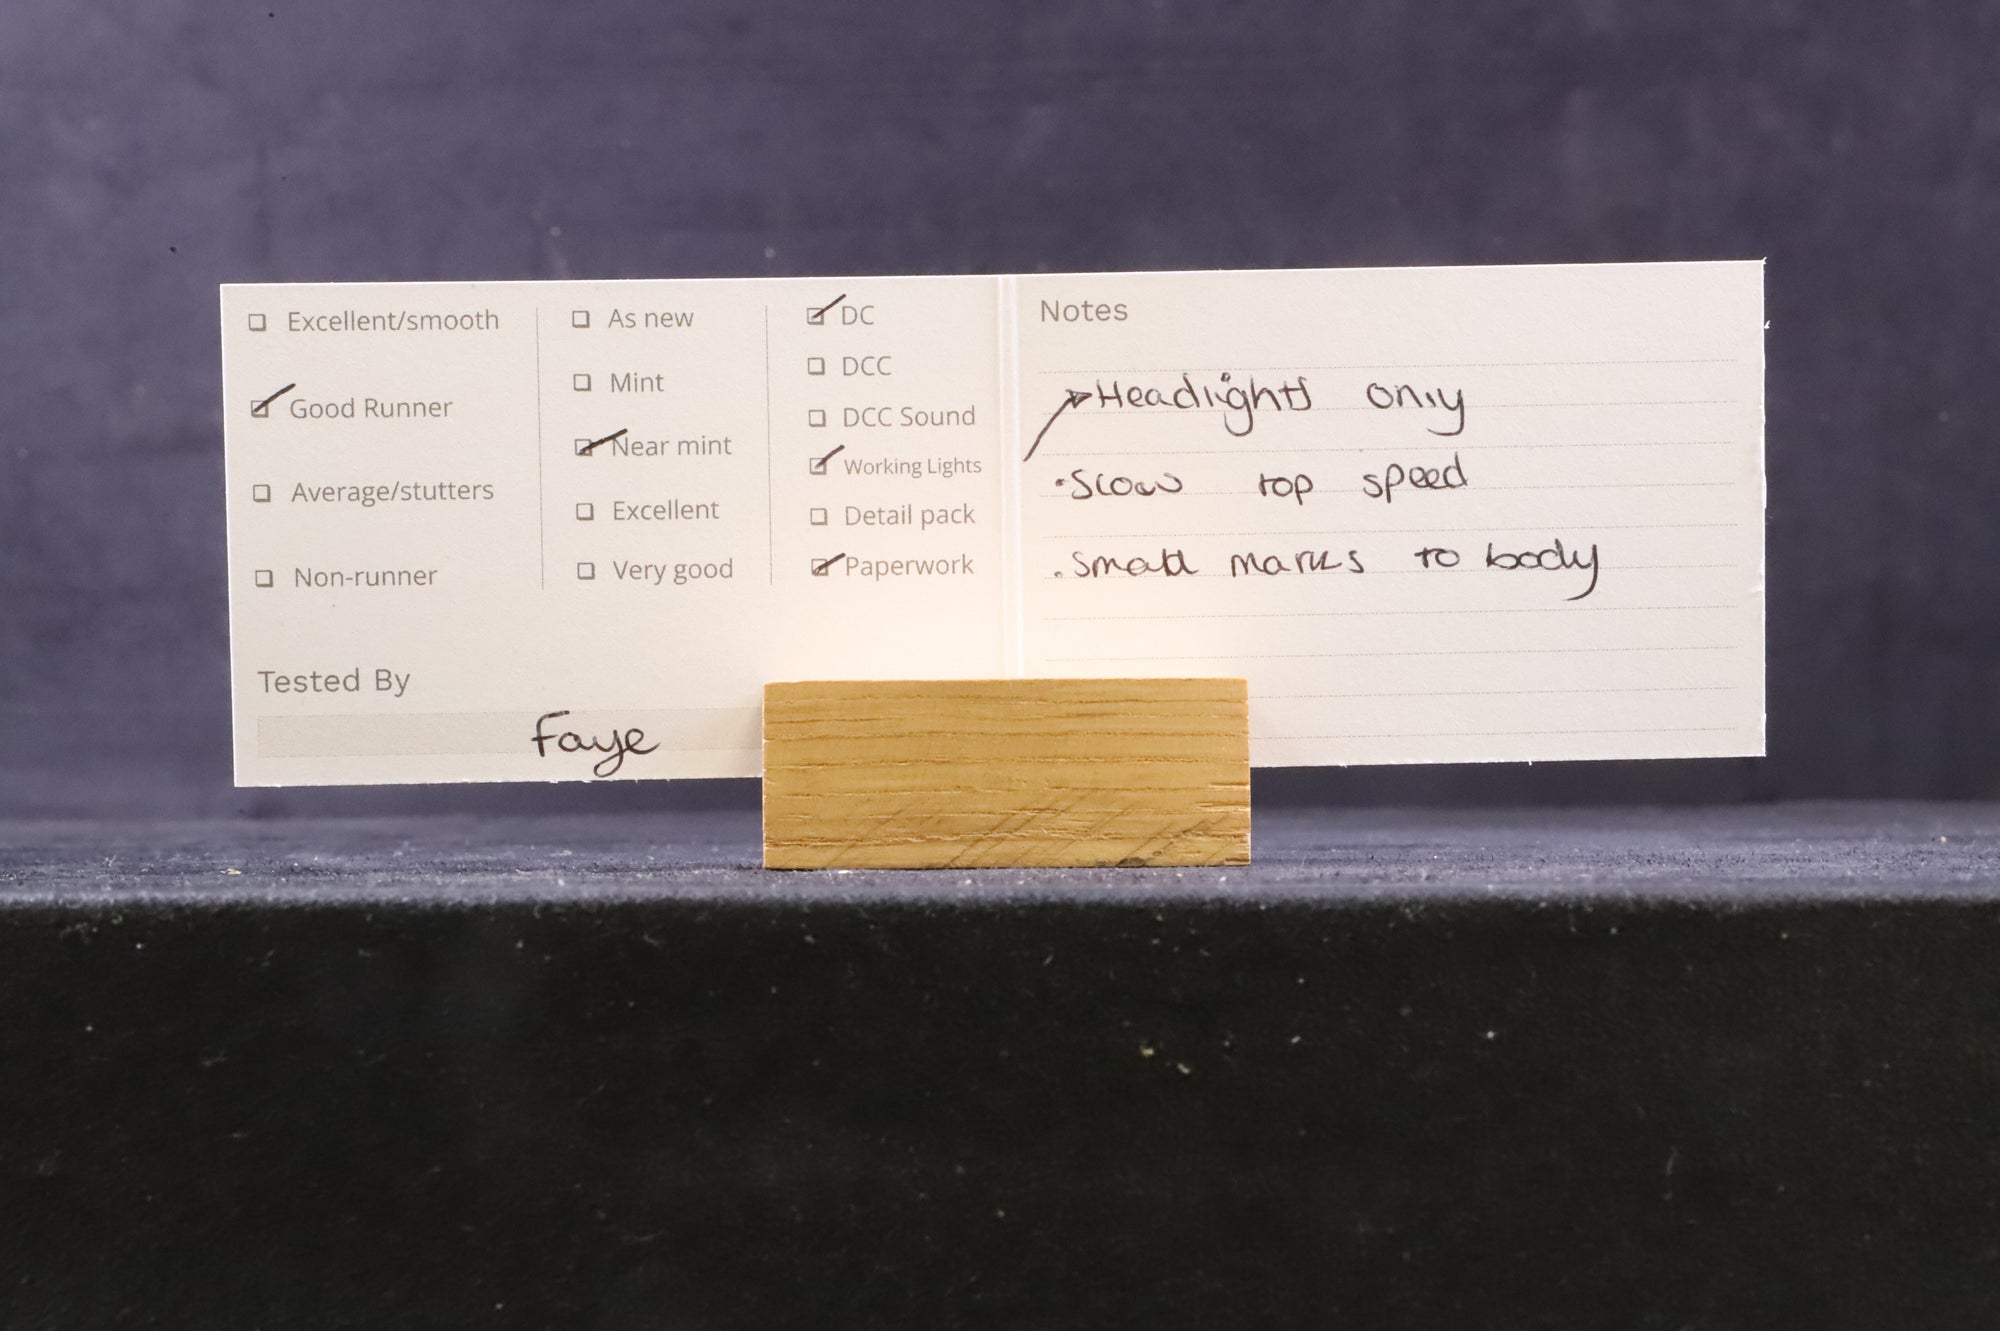 Excellent/smooth
Good Runner
Average/stutters
Non-runner
As new
Mint
Near mint
Excellent
Very good
DC
DCC
DCC Sound
Working Lights
Detail pack
Paperwork
Tested By
Faye
Notes
Headlights only
·Slow top speed
.Small marks to body